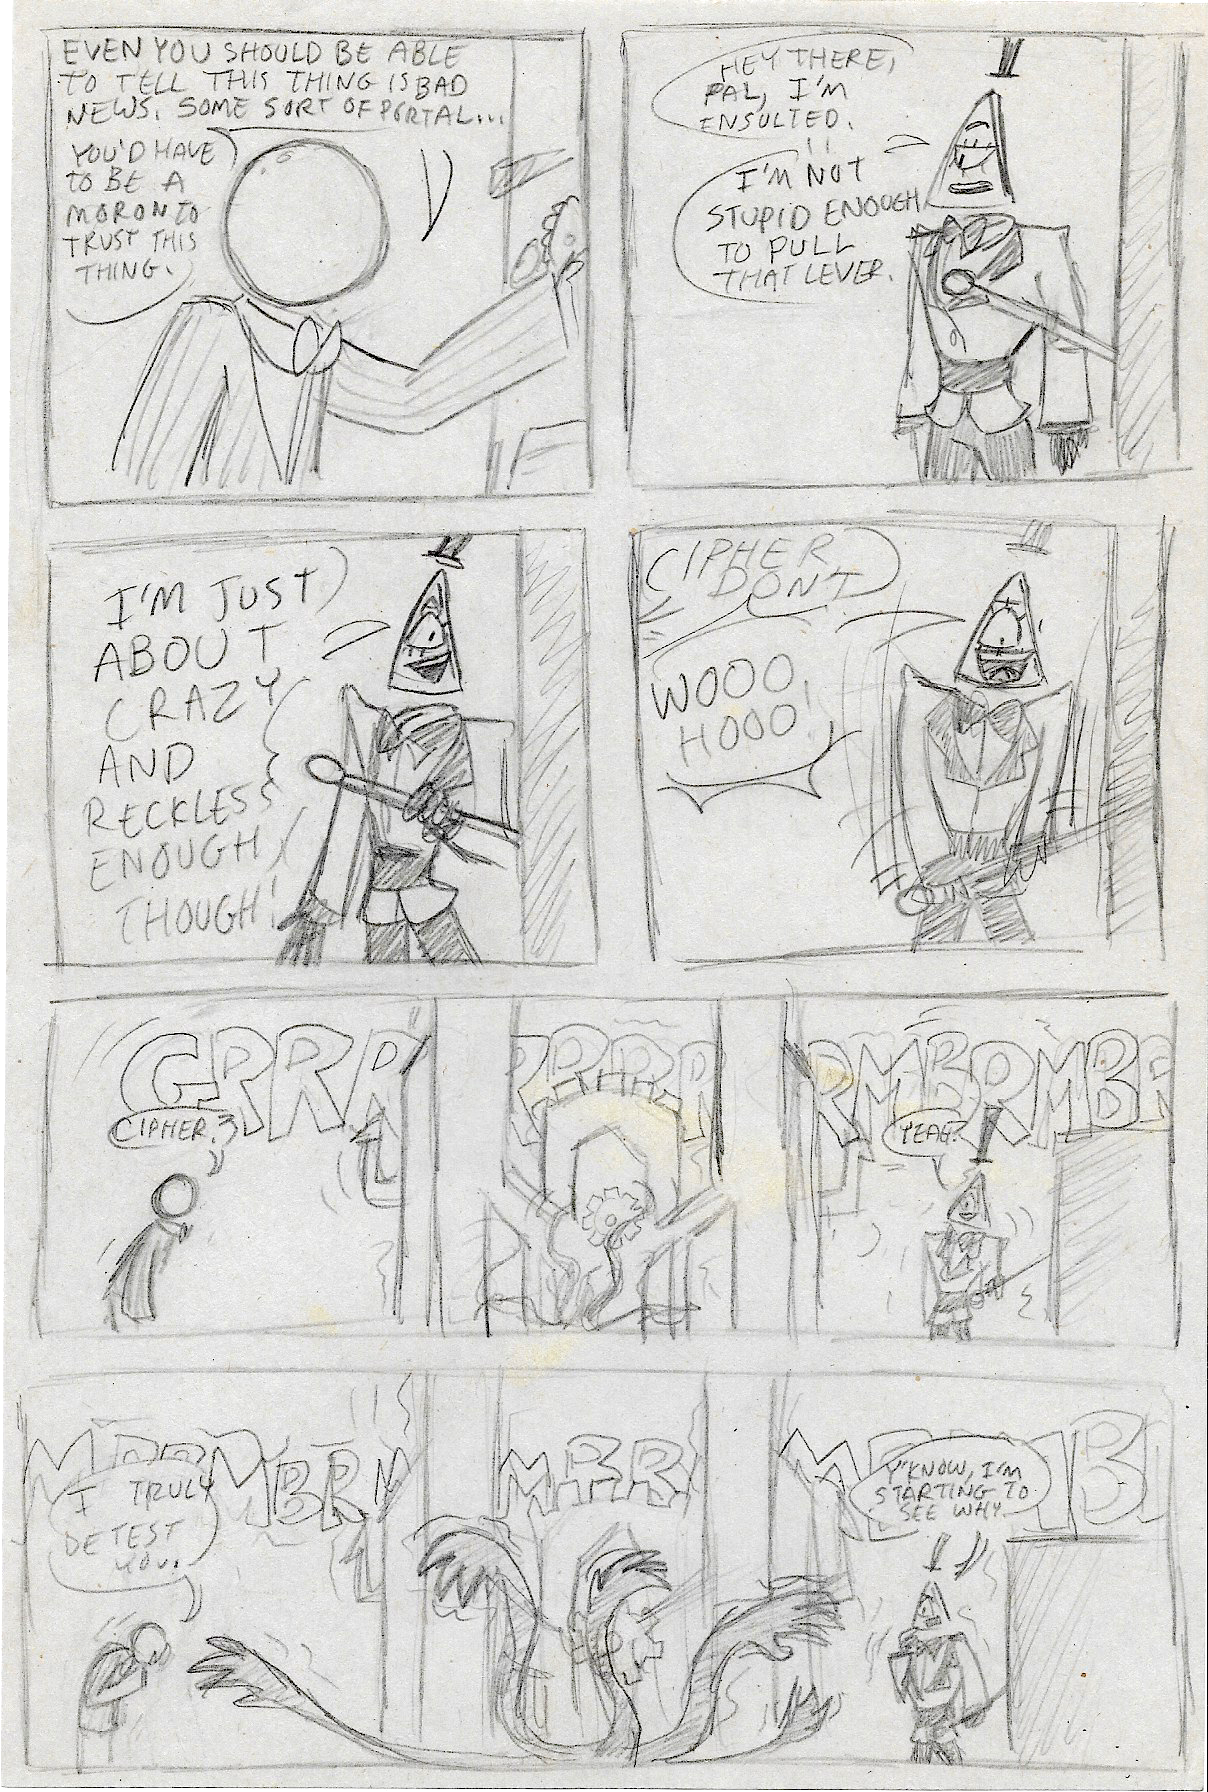 EVEN YOU SHOULD BE ABLE
TO TELL THIS THING IS BAD
NEWS. SOME SORT OF PORTAL...
YOU'D HAVE
TO BE A
MORON TO
TRUST THIS
THING.
HEY THERE,
PAL, I'M
INSULTED.
I'M NOT
STUPID ENOUGH
TO PULL
THAT LEVER.
I'M JUST
ABOUT
CRAZY
AND
RECKLESS
ENOUGH
THOUGH!
CIPHER,
DON'T
WOOO
HOOO!
GRRRR
CIPHER?
RRRRR
RMBRMBR
YEAG?
MRRMBRM
I TRULY
DETEST
YOU.
MRR
Y'KNOW, I'M
STARTING TO
SEE WHY.